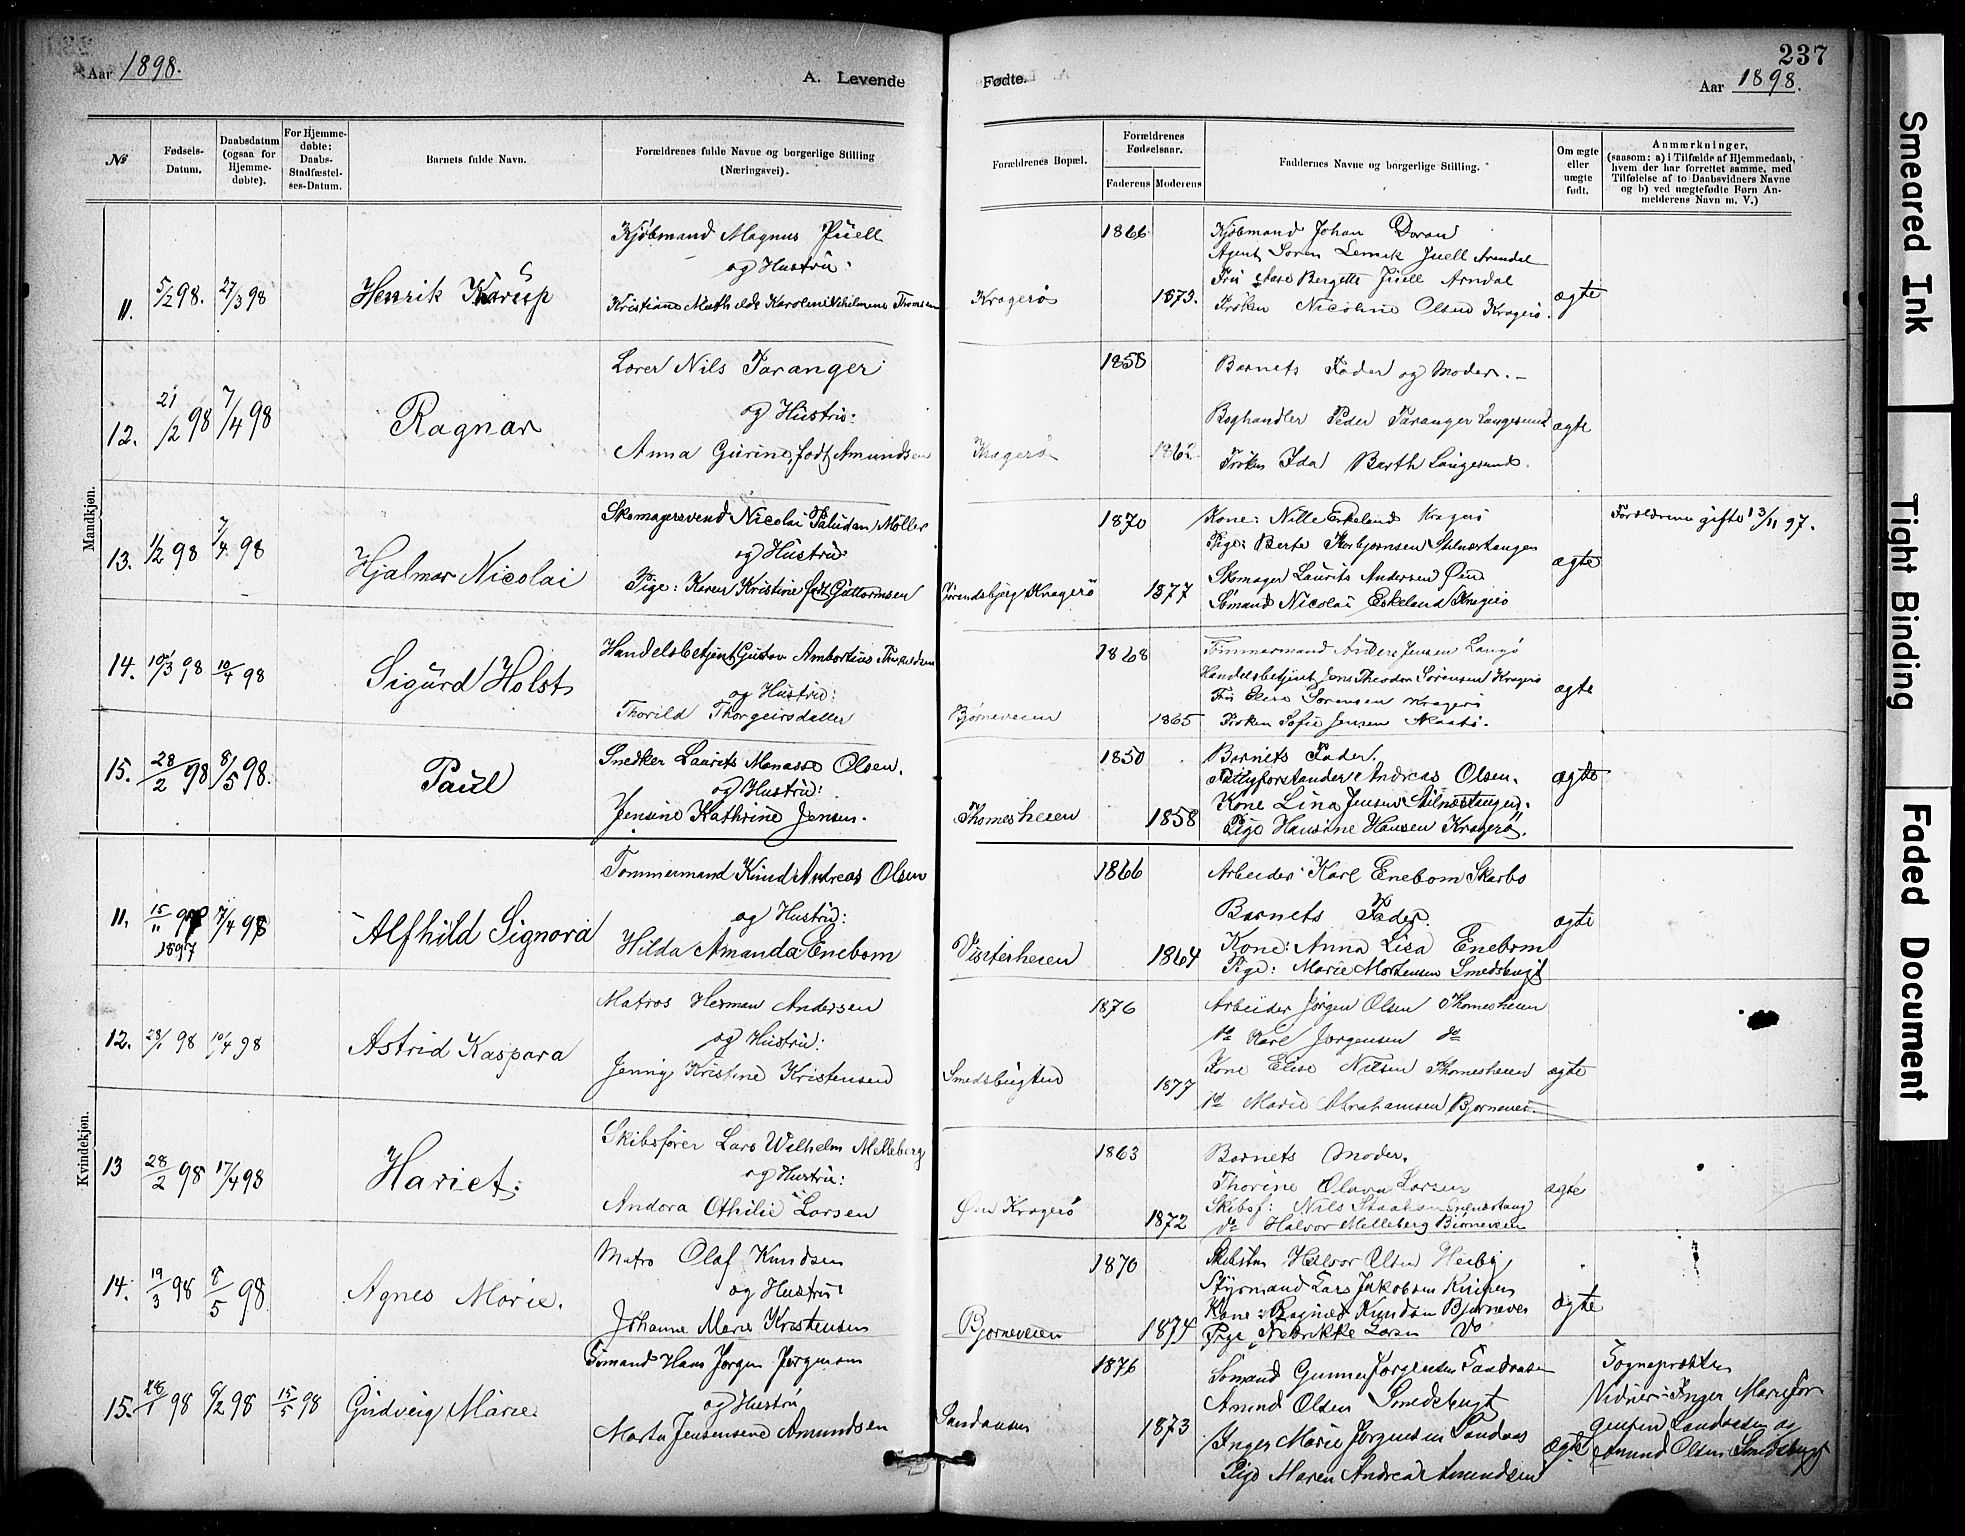 237
Aar 1898.
A. Levende
Fødte.
Aar 1898.
No
Fødsels-Datum.
Daabsdatum (ogsaa for Hjemme-døbte).
For Hjemme-døbte: Daabs-Stadfæstel-ses-Datum.
Barnets fulde Navn.
Forældrenes fulde Navne og borgerlige Stilling (Næringsvei).
Forældrenes Bopæl.
Forældrenes Fødselsaar.
Faderens
Moderens
Faddernes Navne og borgerlige Stilling.
Om ægte eller uægte født.
Anmærkninger,
(saasom: a) i Tilfælde af Hjemmedaab,
hvem der har forrettet samme, med
Tilføielse af to Daabsvidners Navne
og b) ved uægtefødte Børn An-
melderens Navn m. V.)
Mandkjøn.
11. 5/2 98. 27/3 98 Henrik
Kjøbmand Magnus Juell
og Hustru:
Kragerø 1866 1873.
Kjøbmand Johan
Agent Søren Juell Arendal
Fru Bergette Juell Arndal
Frøken Nicoline Olsen Kragerø.
ægte
12. 21/2 98 7/4 98 Ragnar
Lærer Nils Taranger
og Hustru:
Anna Gurine, født Amundsen
Kragerø 1858 1862
Barnets Fader og Moder.
Boghandler Peder Taranger Langesund
Frøken Ida Barth Langesund.
ægte
13. 1/2 98 7/4 98 Hjalmar Nicolai
Skomagersvend Nicolai Paludan Møller
og Hustru:
Pige: Karen Kristine født Guttormsen
Kragerø 1870 1877
Kone: Nille Eskeland Kragerø
Pige: Berte Torbjørnsen Stilnestangen
Skomager Laurits Andersen Øen
Sømand Nicolai Eskeland Kragerø
ægte
Forældrene gifte 13/11 97.
14. 10/3 98 10/4 98 Sigurd Holst
Handelsbetjent Gustav
og Hustru:
Thorild Thorgeirsdatter
Bjørneveien 1868 1865
Tømmermand Jensen Langø
Handelsbetjent Jens Theodor Sørensen Kragerø
Fru Elise Sørensen Kragerø
Frøken Sofie Jensen Skaatø.
ægte
15. 28/2 98 8/5 98. Paul
Snedker Laurits Manasse Olsen.
og Hustru:
Jensine Kathrine Jensen.
Thomesheien 1850 1858
Barnets Fader.
Andreas Olsen.
Kone Lina Jensen Stilnestangen.
Pige Hansine Hansen Kragerø.
ægte
Kvindekjøn.
11. 15/11 97 1897 7/4 98 Alfhild Signora
Tømmermand Knud Andreas Olsen
og Hustru:
Hilda Amanda Enebom
Visterheien 1866 1864
Arbeider Karl Enebom Skarbo
Barnets Fader.
Kone: Anna Lisa Enebom
Pige: Marie Mortensen Smedsbugt
ægte
12. 23/1 98 10/4 98 Astrid Kaspara
Matros Herman Andersen
og Hustru:
Jenny Kristine Kristensen
Smedsbugten 1876 1877
Arbeider Jørgen Olsen Thomesheien
do Karl Jørgensen do
Kone Elise Nilsen Thomesheien
do Marie Abrahamsen Bjørnevei.
ægte
13 28/2 98 17/4 98 Hariet.
Skibsfører Lars Wilhelm Melleberg
og Hustru:
Andora Othilie Larsen
Øen Kragerø 1863 1872
Barnets Moder.
Thorine Olava Larsen
Skibsf: Nils
do Halvor Melleberg Bjørneveien
ægte
14. 19/3 98 8/5 98 Agnes Marie.
Matro Olaf Knudsen
og Hustru
Johanne Marie Kristensen
Bjørneveien 1870 1874
Halvor Olsen Heiby
Styrmand Lars Jakobsen
Kone: Ragnes Knudsen Bjørnevei
Pige Larsen Do
ægte
15. 98 98 15/5 98 Gudveig Marie.
Sømand Hans Jørgen Jørgensen
og Hustru
Marta Amundsen
Sandaasen 1876 1873
Sømand Gunner Jørgensen Sandaasen
Amund Olsen Smedsbugt
Inger Marie Jørgensen Sandaas
Pige Maren Andrea Amundsen
ægte
Sognepræsten
Vidner: Inger Marie Jør
gensen Sandaasen og
Amund Olsen Smedsbugt
Smeared Ink
Tight Binding
Faded Document